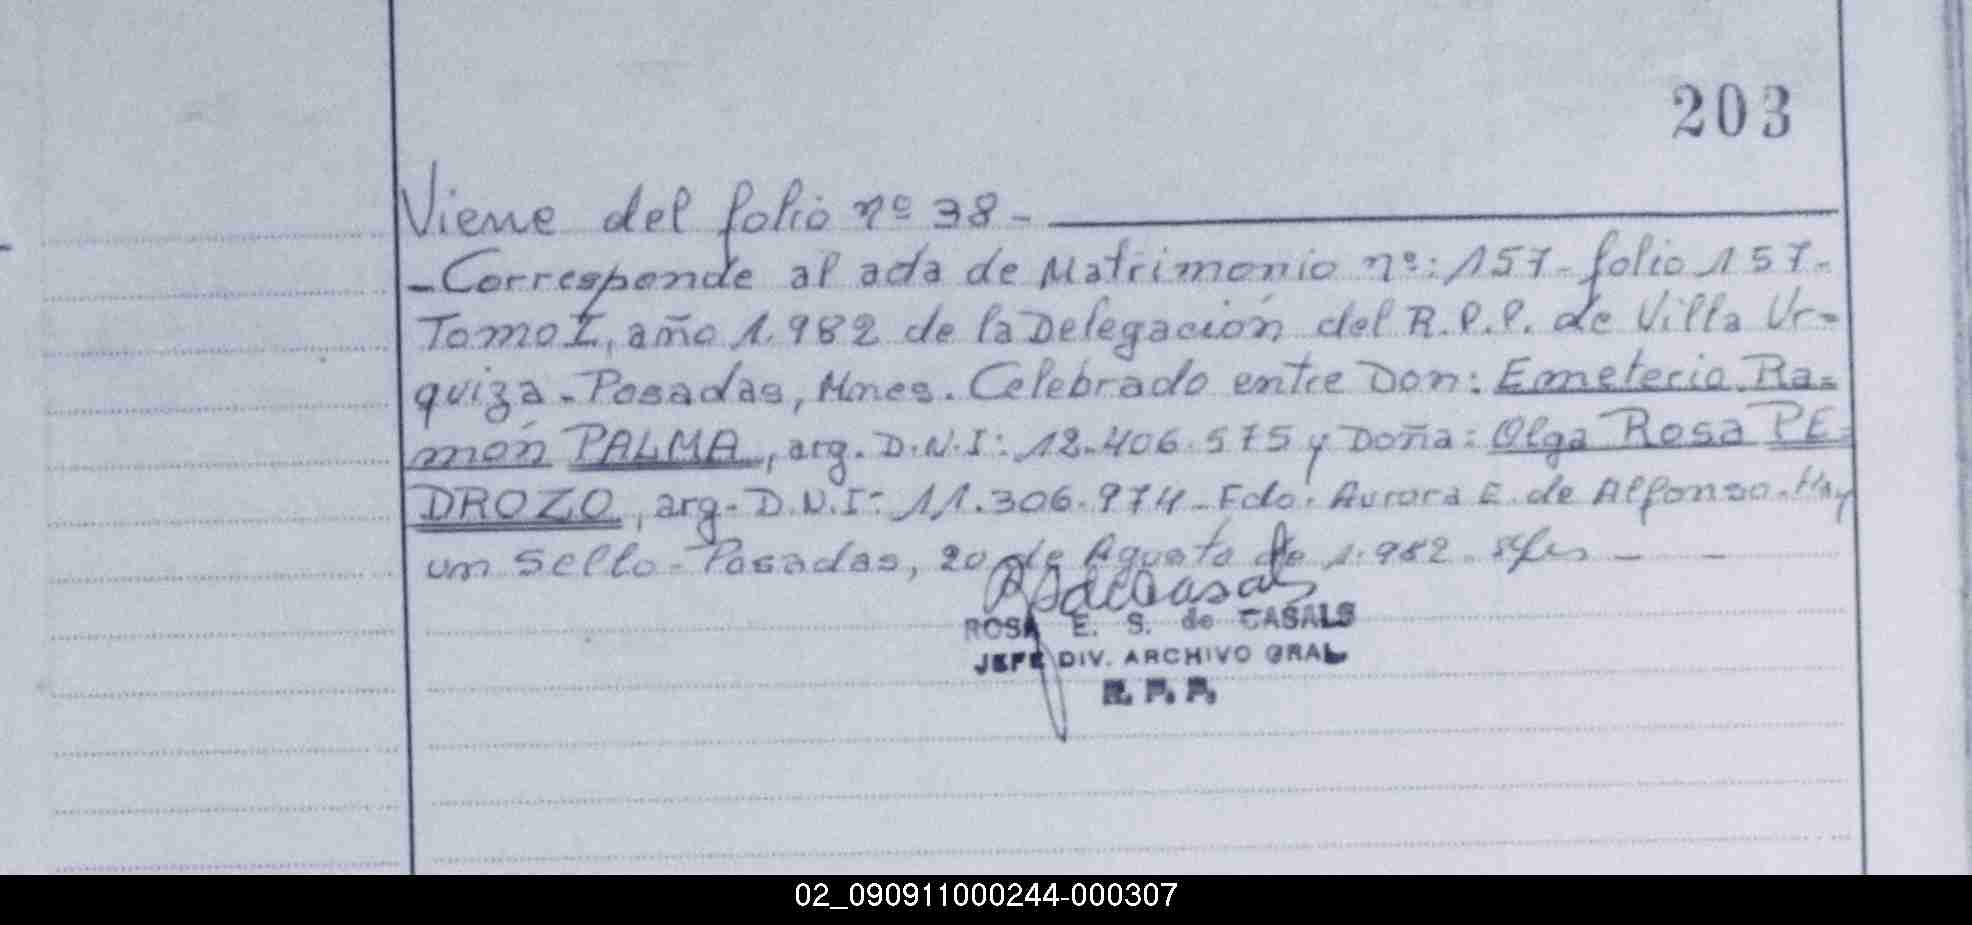 203
Viene del folio nº 38 -
- Corresponde al acta de Matrimonio nº: 157 - folio 157 -
Tomo I, año 1.982 de la Delegación del R.P.P. de Villa Ur-
quiza - Posadas, Mnes. Celebrado entre Don: Emeterio Ra-
món PALMA, arg. D.N.I: 12.406.575 y Doña: Olga Rosa PE-
DROZO, arg. D.N.I: 11.306.974 - Fdo. Aurora E. de Alfonso. Hay
un sello - Posadas, 20 de Agosto de 1.982.
ROSA E. S. de CASALS
JEFE DIV. ARCHIVO GRAL
R. P. P.
02_090911000244-000307